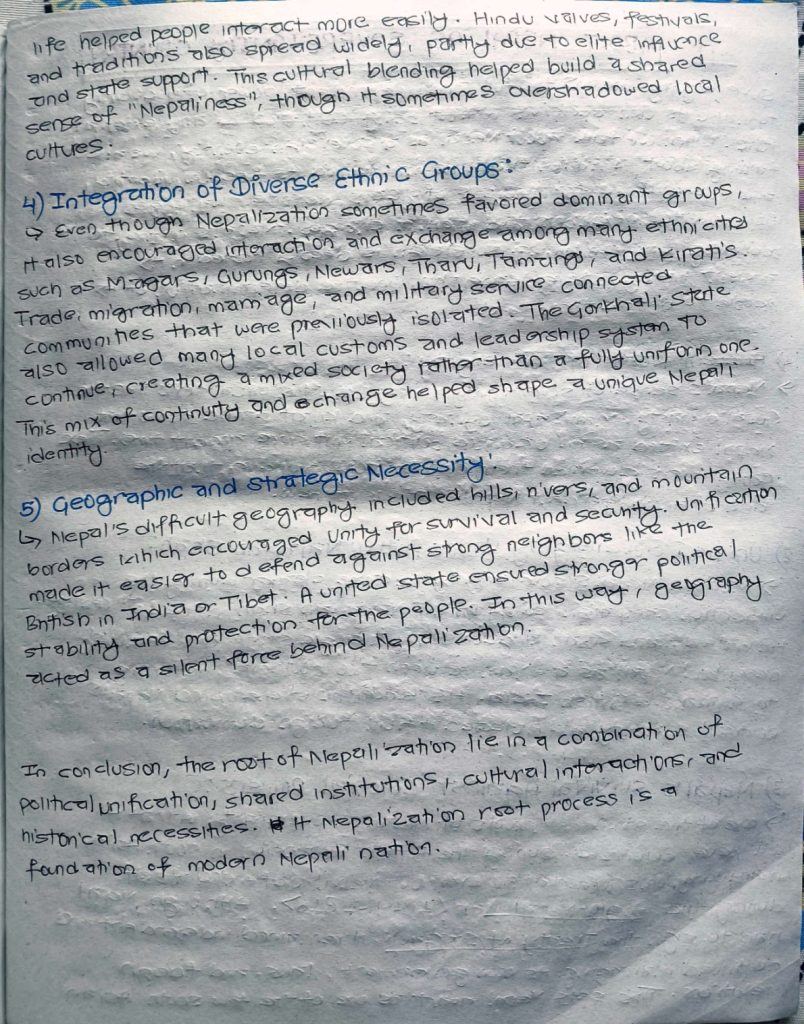 life helped people interact more easily. Hindu values, festivals,
and traditions also spread widely, partly due to elite influence
and state support. This cultural blending helped build a shared
sense of "Nepaliness", though it sometimes overshadowed local
cultures.
4) Integration of Diverse Ethnic Groups:
↳ Even though Nepalization sometimes favored dominant groups,
it also encouraged interaction and exchange among many ethnicities
such as Magars, Gurungs, Newars, Tharu, Tamangs, and Kiratis.
Trade, migration, marriage, and military service connected
communities that were previously isolated. The Gorkhali state
also allowed many local customs and leadership system to
continue, creating a mixed society rather than a fully uniform one.
This mix of continuity and change helped shape a unique Nepali
identity.
5) Geographic and Strategic Necessity:
↳ Nepal's difficult geography included hills, rivers, and mountain
borders which encouraged unity for survival and security. Unification
made it easier to defend against strong neighbors like the
British in India or Tibet. A united state ensured stronger political
stability and protection for the people. In this way, geography
acted as a silent force behind Nepalization.
In conclusion, the root of Nepalization lie in a combination of
political unification, shared institutions, cultural interactions, and
historical necessities. It Nepalization root process is a
foundation of modern Nepali nation.